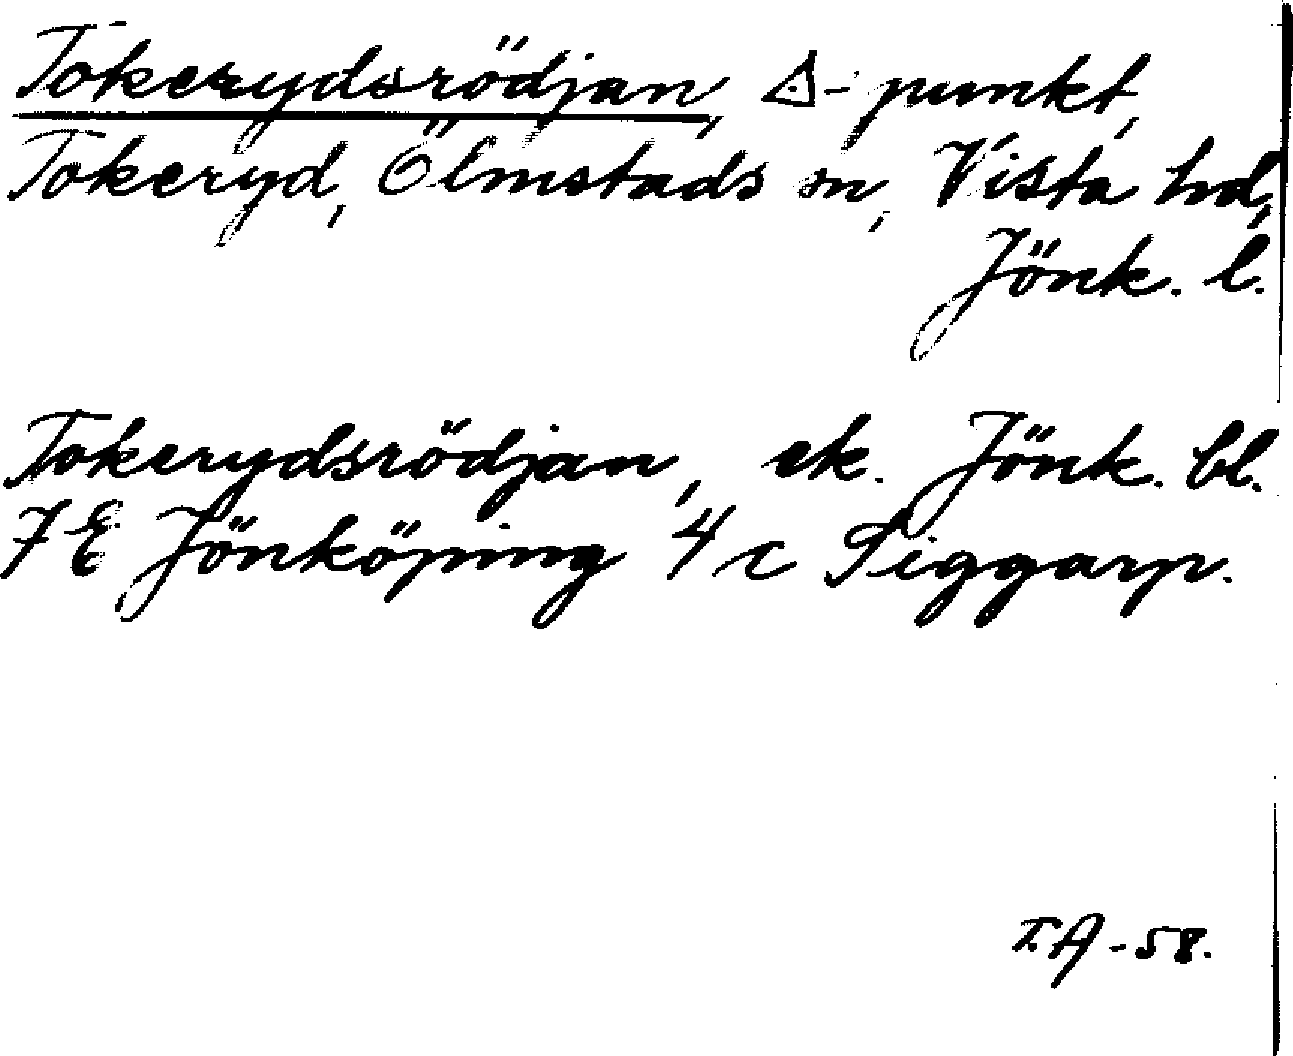 Tokerydsrödjan, △-punkt,
Tokeryd, Ölmstads sn, Vista hd,
Jönk. l.
Tokerydsrödjan, ek. Jönk. bl.
7E Jönköping 4c Siggarp.
T.A-58.